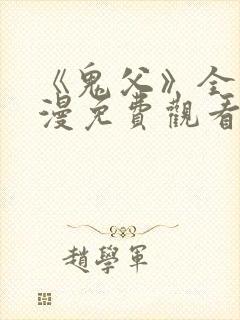 《鬼父》全
漫免費觀看
趙學軍